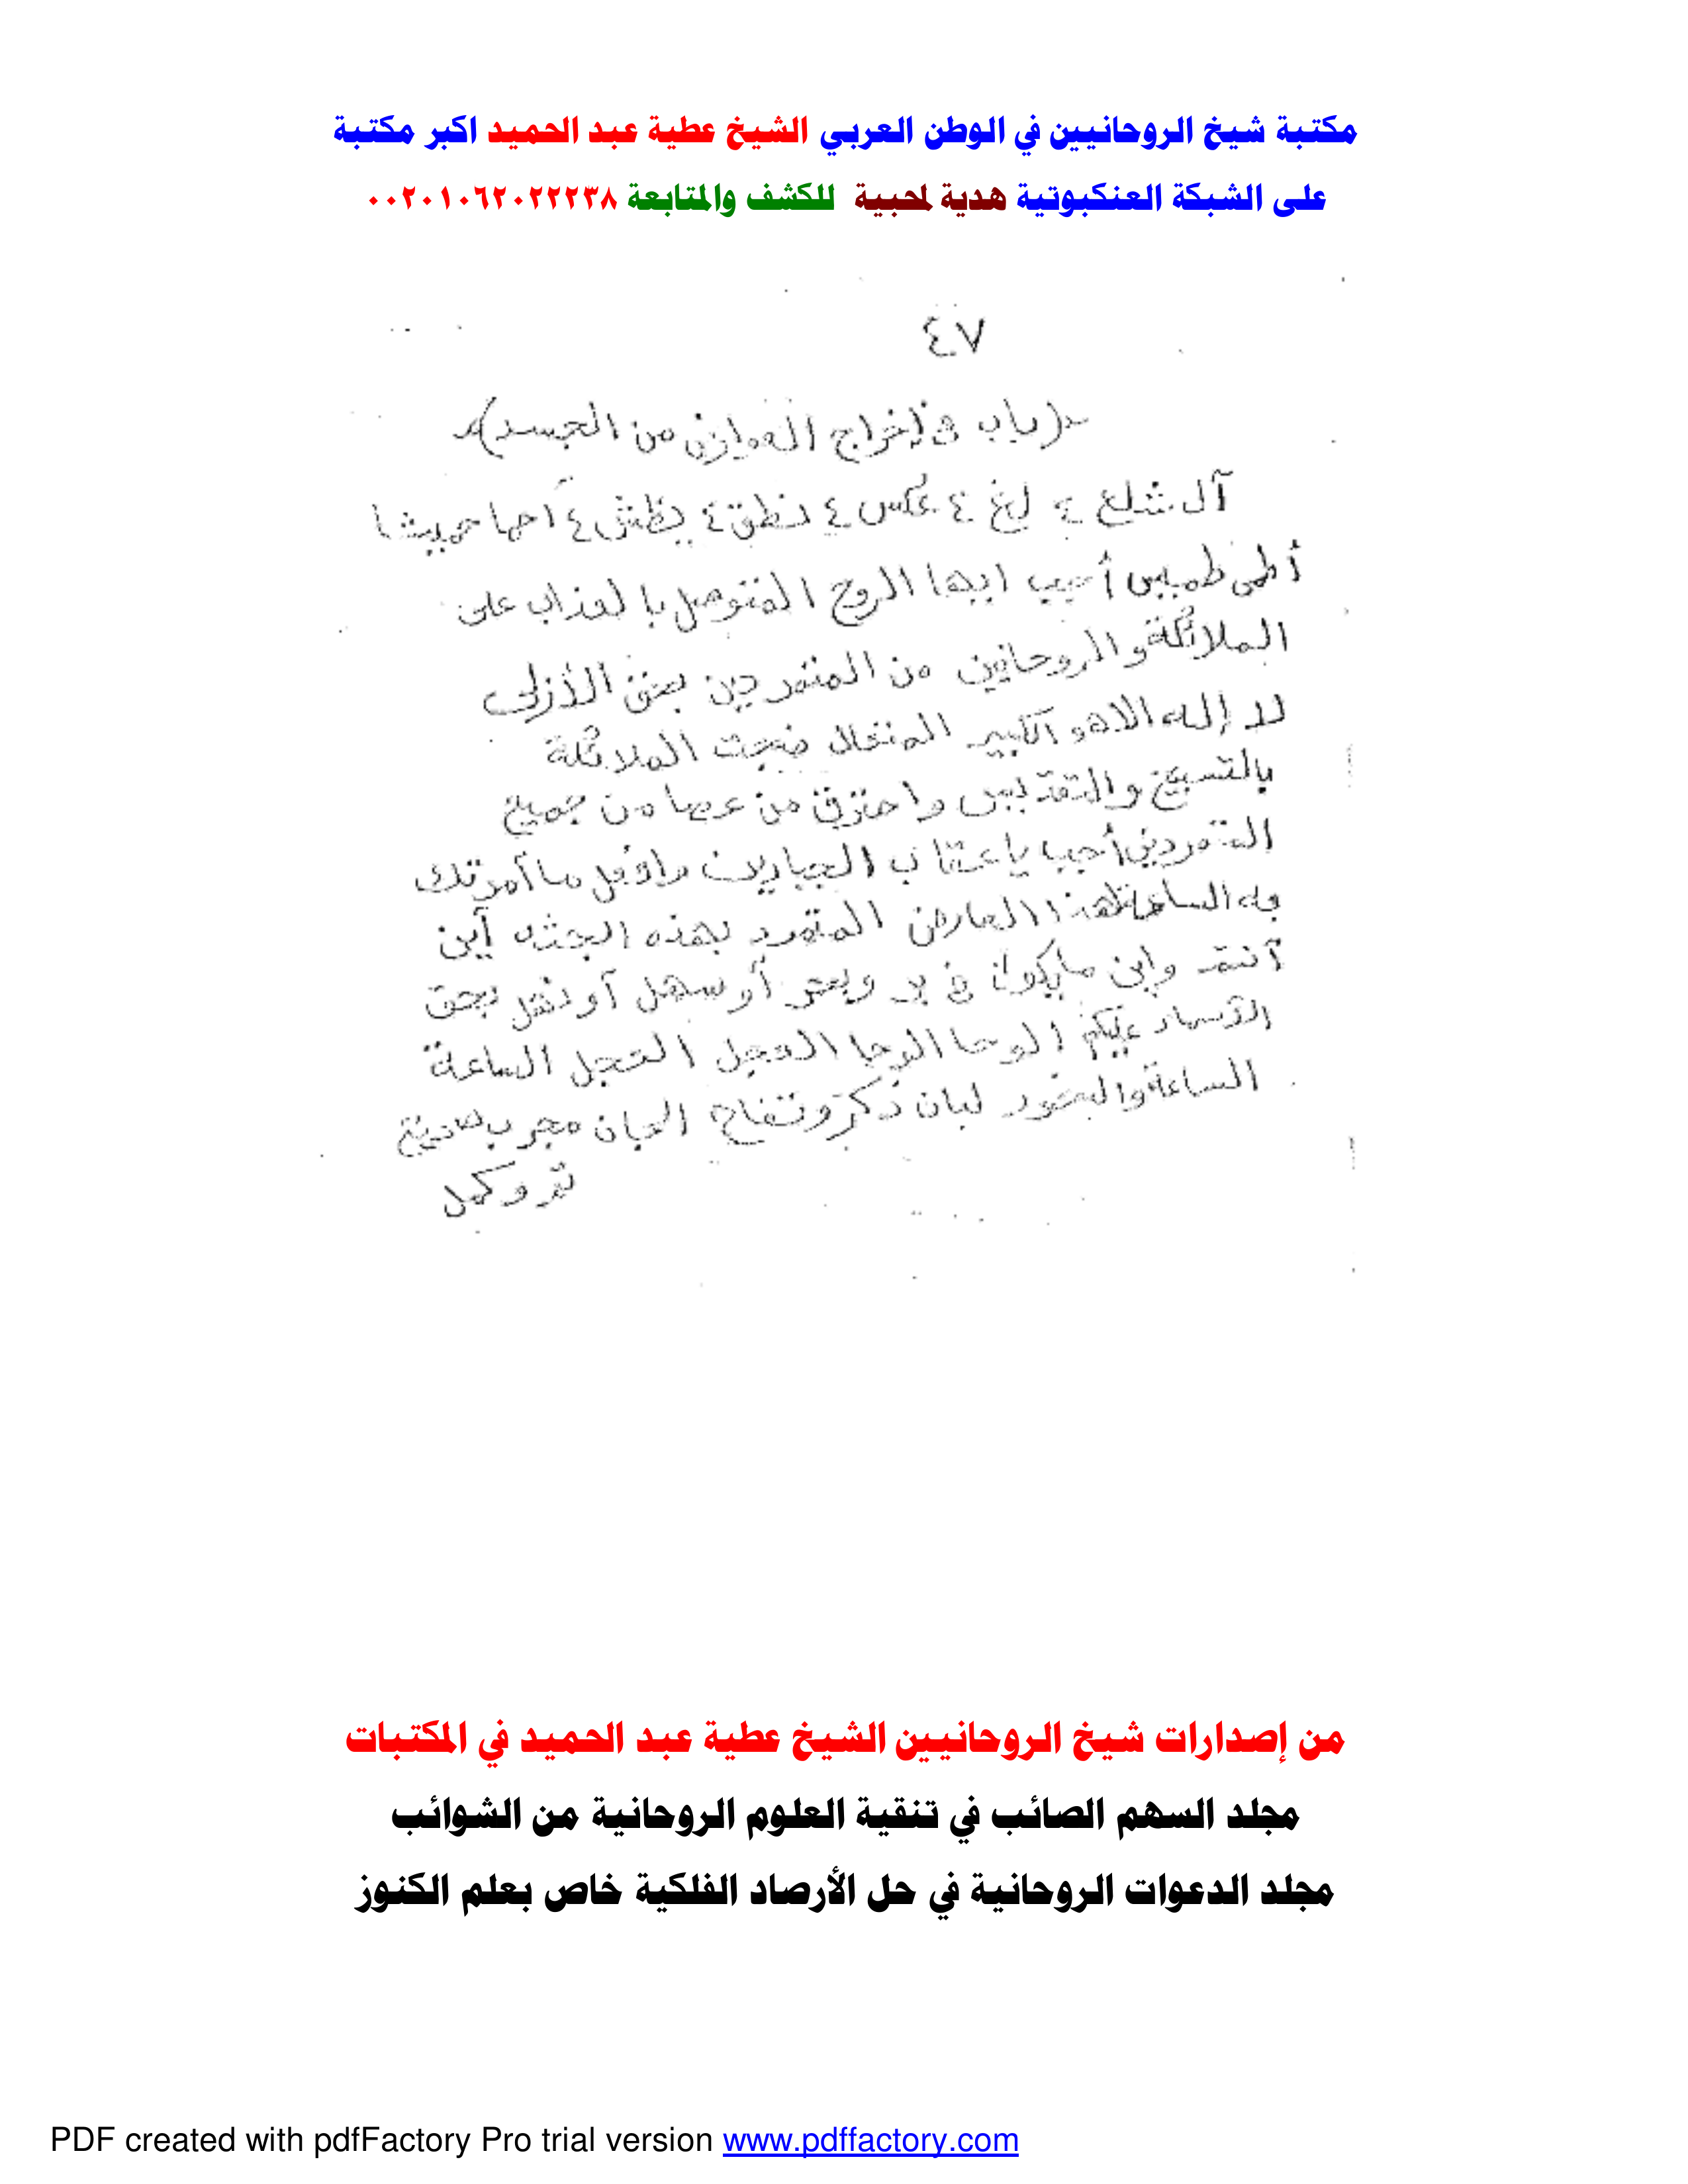 مكتبة شيخ الروحانيين في الوطن العربي الشيخ عطية عبد الحميد اكبر مكتبة
على الشبكة العنكبوتية هدية لمحبية للكشف والمتابعة ٠٠٢٠١٠٦٢٠٢٢٢٣٨
٤٧
(باب في إخراج العوارض من الجسد)
آل شلع ٤ ليغ ٤ عكس ٤ نطق ٤ يظش ٤ احما حميشا
أطمى طميس أجيب ايها الروح المتوصل بالعذاب على
الملائكة والروحانين من المتمردين بحق الأزلى
لا إله الا هو الكبير المتعال ضجت الملائكة
بالتسبيح والتقديس واحترق من عصا من جميع
المتمردين أجب يا عقاب الجبارين وافعل ما آمرتك
به الساعة لهذا العارض المتمرد بهذه الجثه آين
آنتم واين مايكون في بر وبحر أو سهل آو بحق
عليكم الوحا الوحا العجل العجل الساعة
الساعة والبخور لبان ذكر وتفاح الجان مجرب صحيح
تم وكمل
من إصدارات شيخ الروحانيين الشيخ عطية عبد الحميد في المكتبات
مجلد السهم الصائب في تنقية العلوم الروحانية من الشوائب
مجلد الدعوات الروحانية في حل الأرصاد الفلكية خاص بعلم الكنوز
PDF created with pdfFactory Pro trial version www.pdffactory.com